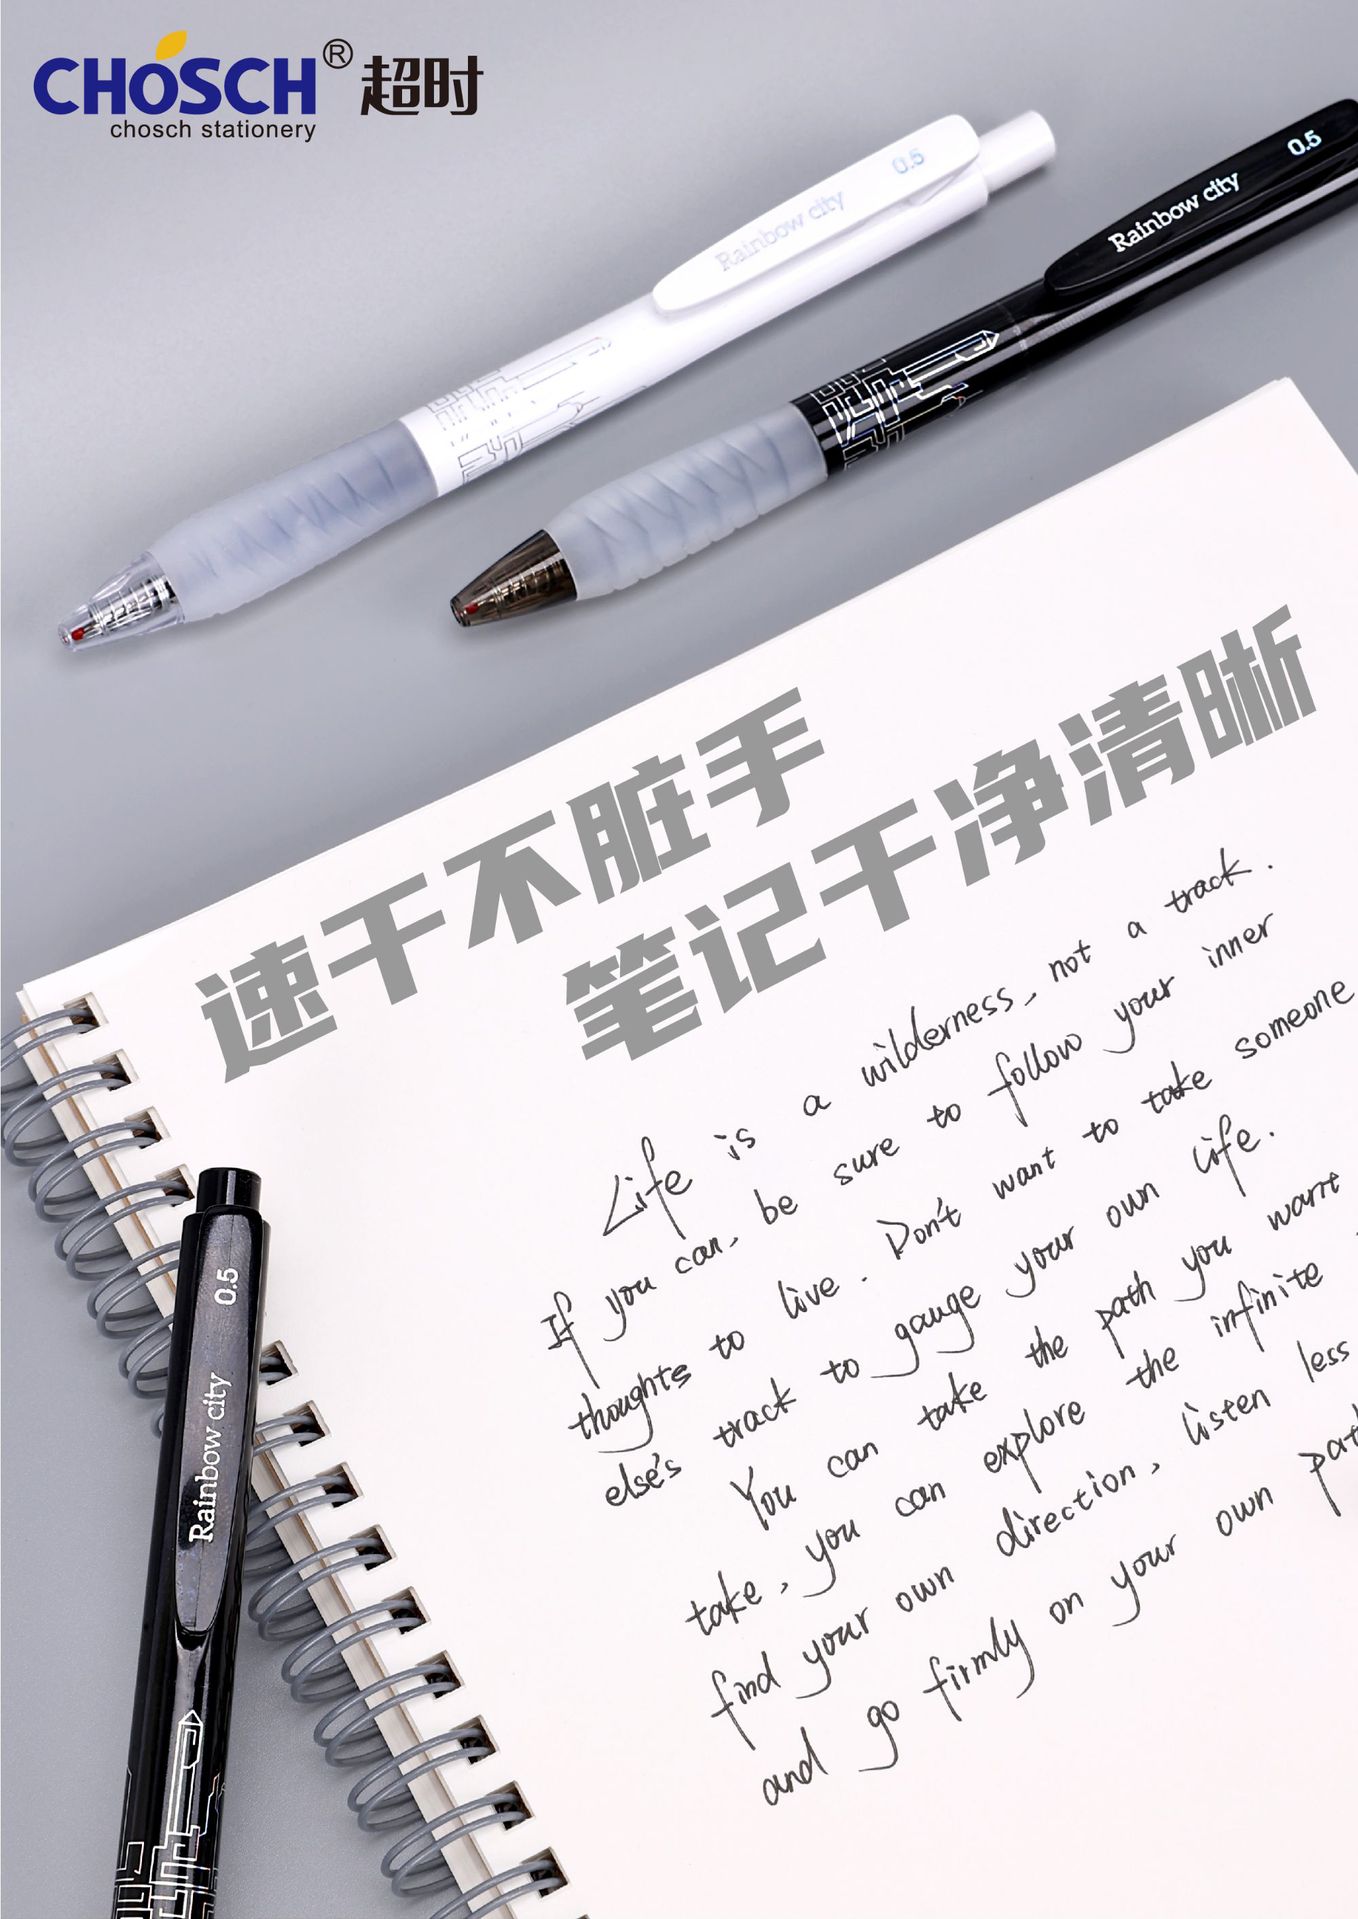 CHOSCH® 超时
chosch stationery
Rainbow city 0.5
Rainbow city 0.5
速干不脏手
笔记干净清晰
Life is a wilderness, not a track.
If you can, be sure to follow your inner
thoughts to live. Don't want to take someone
else's track to gauge your own life.
You can take the path you want
take, you can explore the infinite
find your own direction, listen less
and go firmly on your own
Rainbow city 0.5